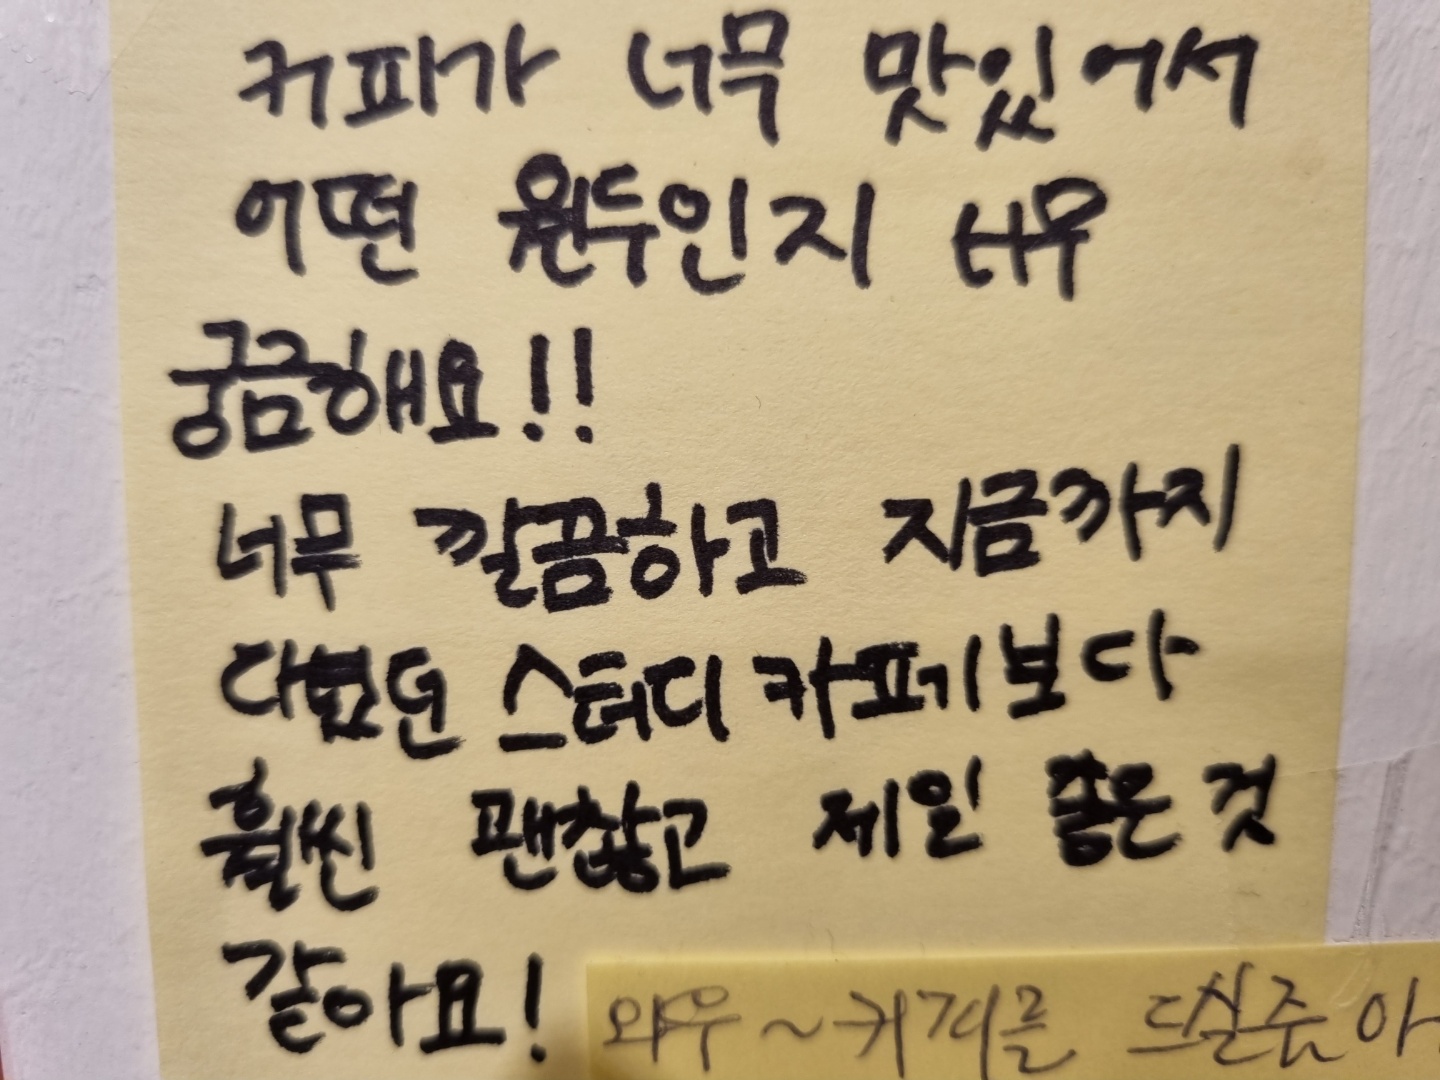 커피가 너무 맛있어서
어떤 원두인지 너무
궁금해요!!
너무 깔끔하고 지금까지
다녔던 스터디카페보다
훨씬 괜찮고 제일 좋은 것
같아요!
와우~커피를 드실줄 아